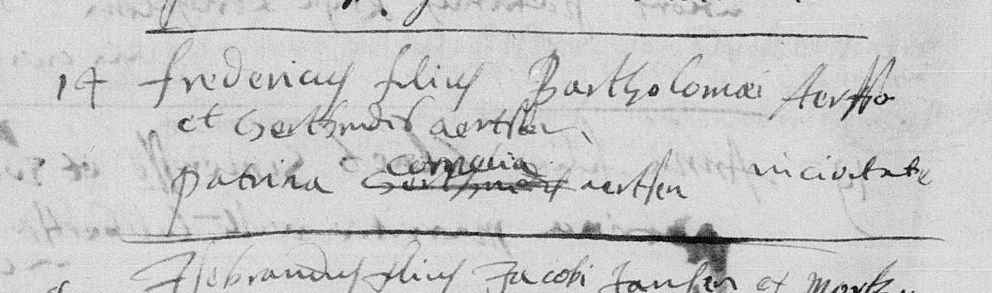 14 Fredericus filius Bartholomæi Aertsso
et Gerthrudis aertssen.
patrina cornelia Gerthrudis aertssen in civitate
Jsebrandus filius Jacobi Jansen et